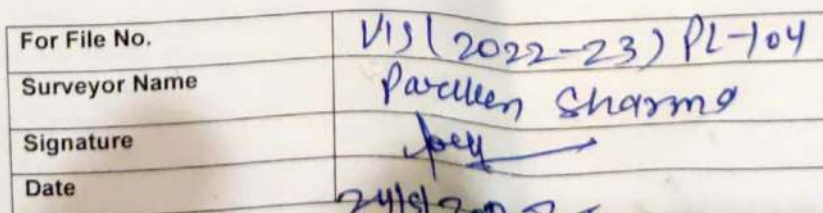 For File No. VIS (2022-23) PL-104
Surveyor Name Parveen Sharma
Signature
Date